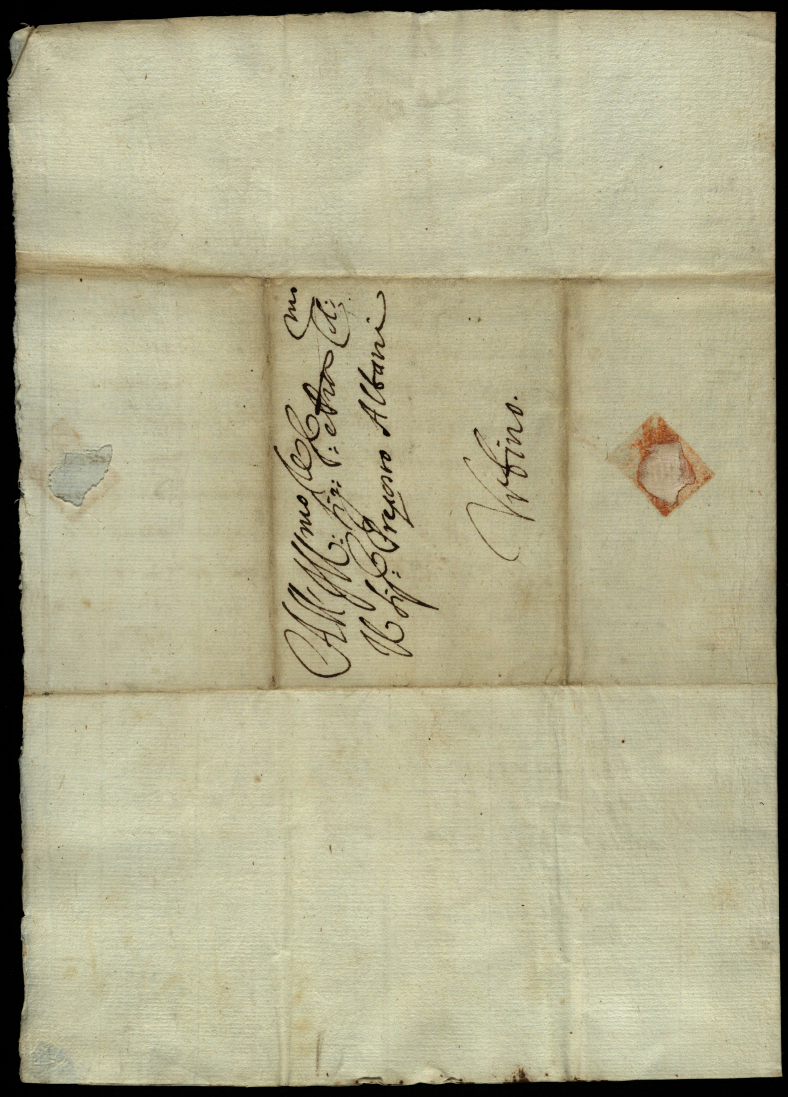 All' Ill:mo Sig: P:rone Col:mo
Il Sig: Gregorio Albani
Vrbino.